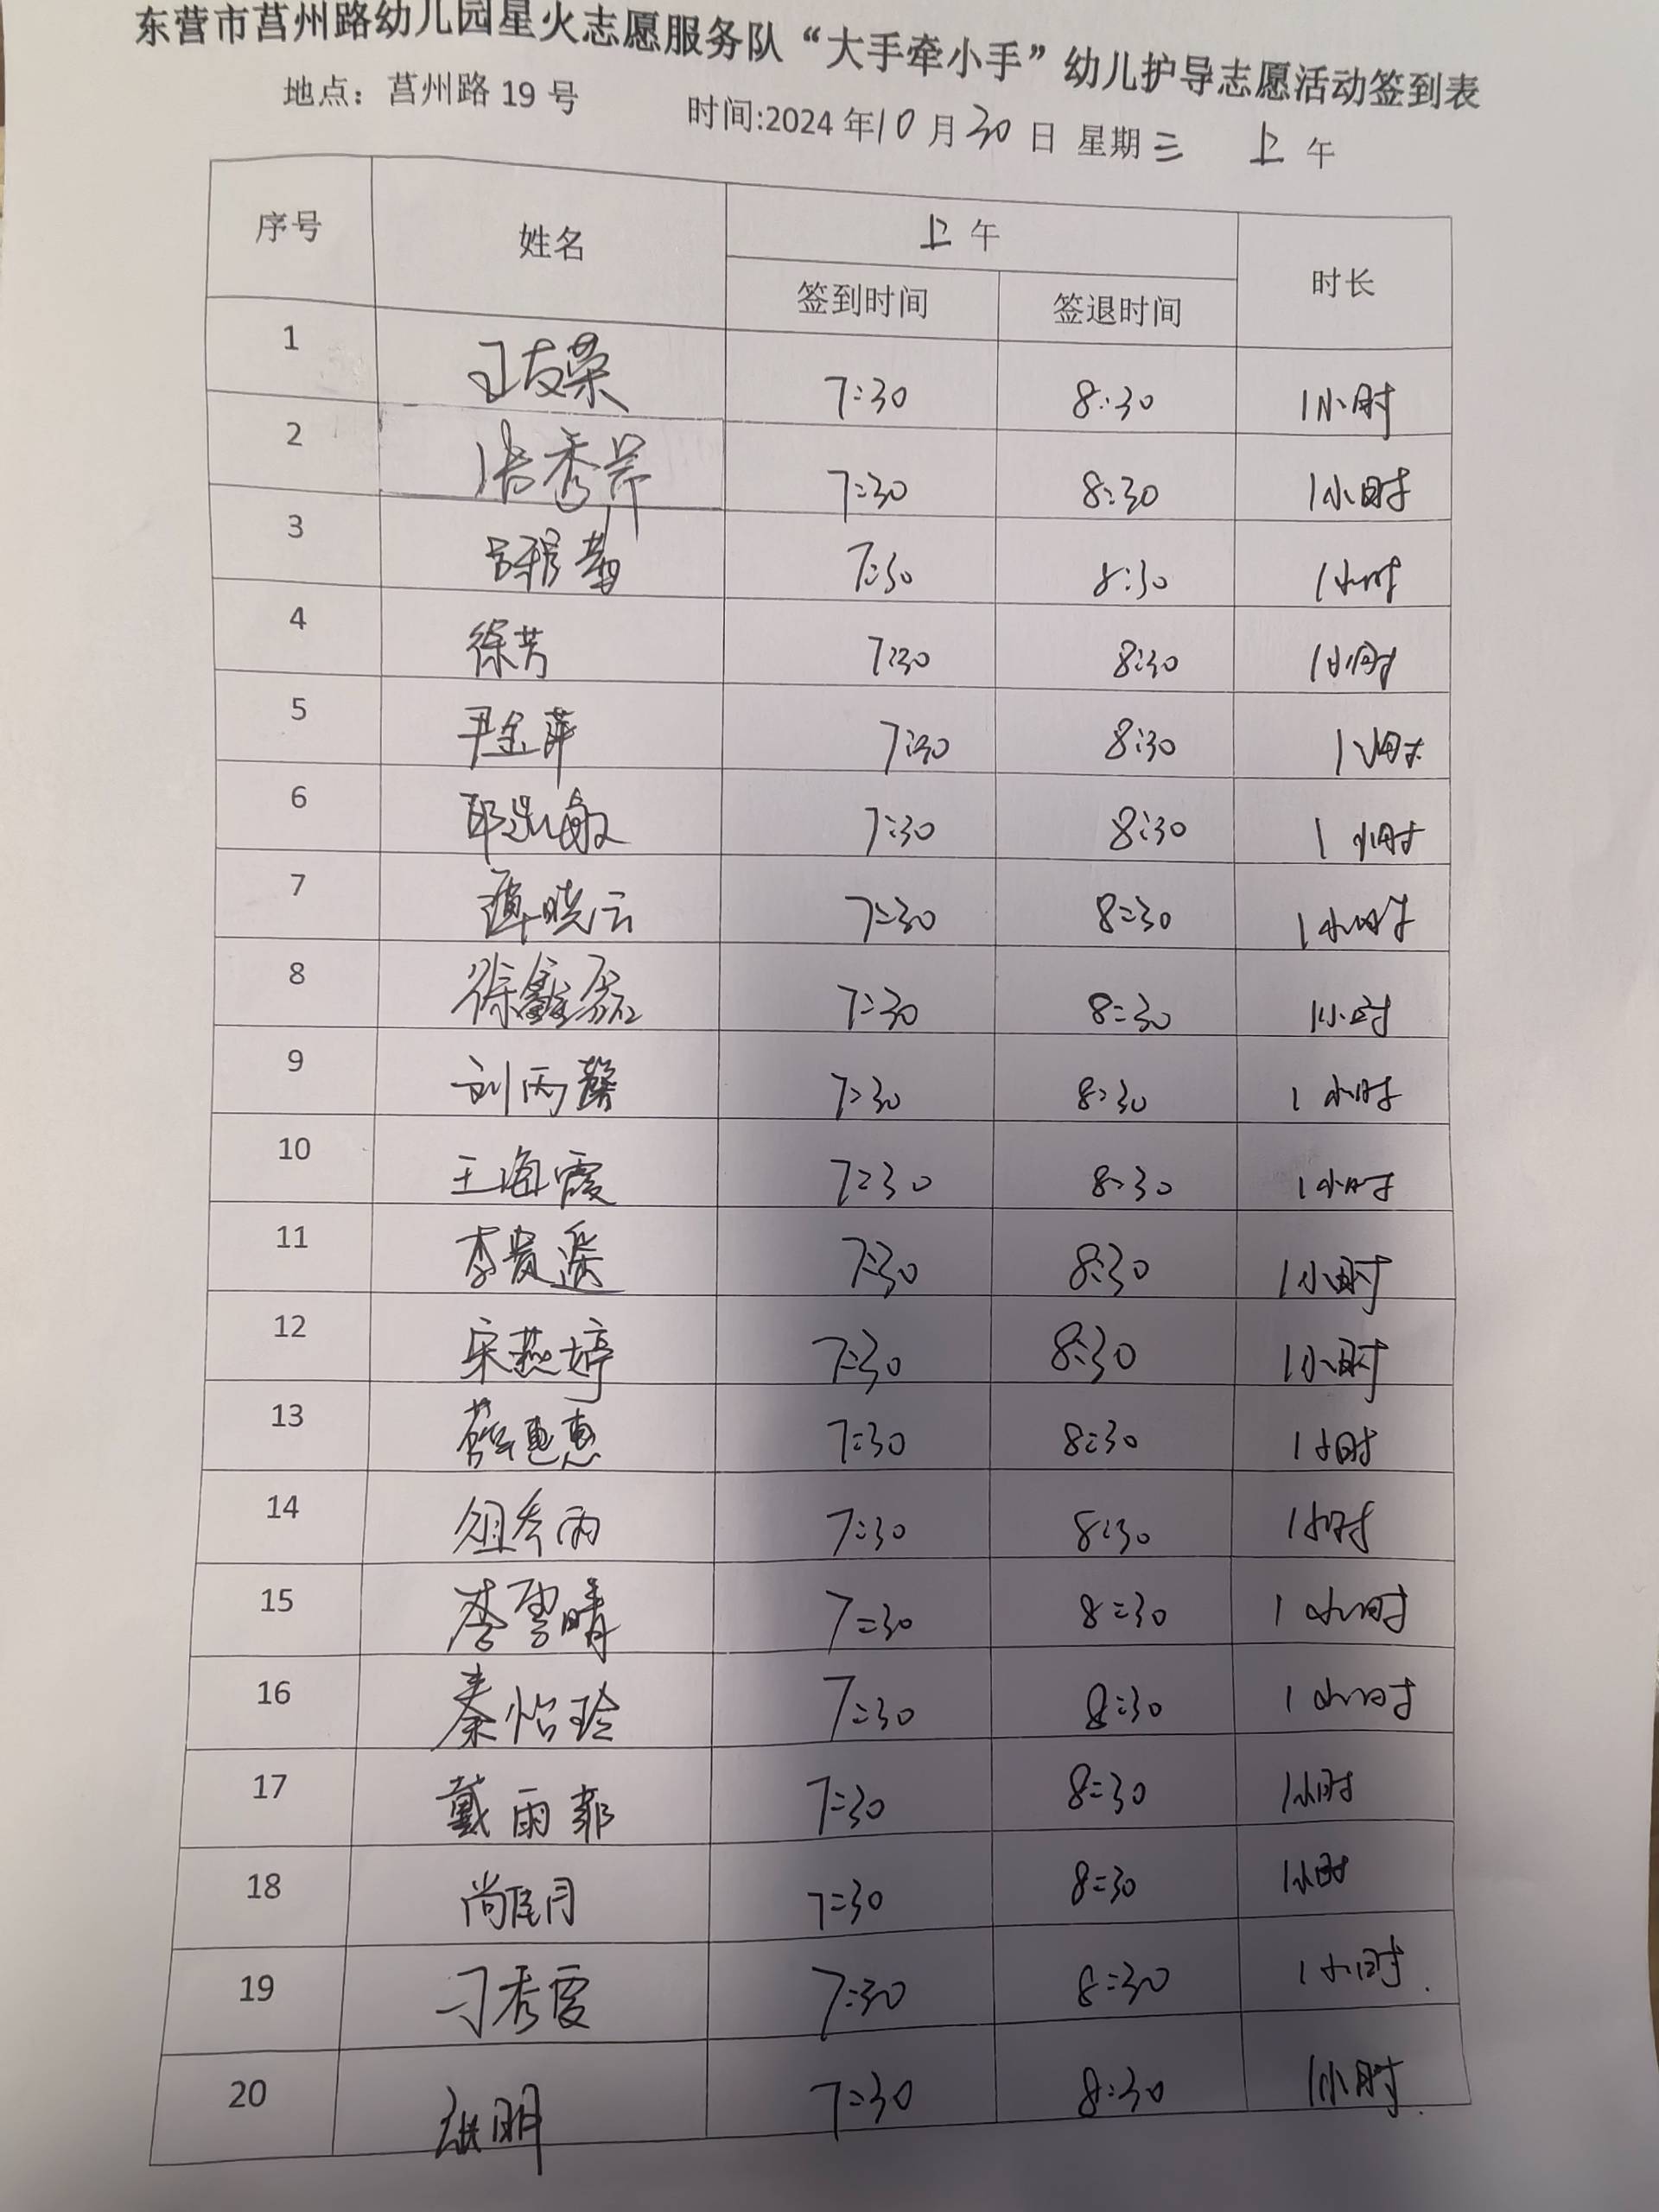 东营市莒州路幼儿园星火志愿服务队“大手牵小手”幼儿护导志愿活动签到表
地点：莒州路 19 号 时间:2024 年10月30日 星期三 上午
序号 姓名 上午 时长
签到时间 签退时间
1 王友荣 7:30 8:30 1小时
2 张秀芹 7:30 8:30 1小时
3 7:30 8:30 1小时
4 徐芳 7:30 8:30 1小时
5 尹金萍 7:30 8:30 1小时
6 7:30 8:30 1小时
7 谭晓云 7:30 8:30 1小时
8 徐鑫磊 7:30 8:30 1小时
9 刘丙馨 7:30 8:30 1小时
10 王海霞 7:30 8:30 1小时
11 李贵遥 7:30 8:30 1小时
12 宋燕婷 7:30 8:30 1小时
13 薛惠惠 7:30 8:30 1小时
14 7:30 8:30 1小时
15 李雪晴 7:30 8:30 1小时
16 秦怡玲 7:30 8:30 1小时
17 戴雨菲 7:30 8:30 1小时
18 7:30 8:30 1小时
19 刁秀霞 7:30 8:30 1小时
20 7:30 8:30 1小时